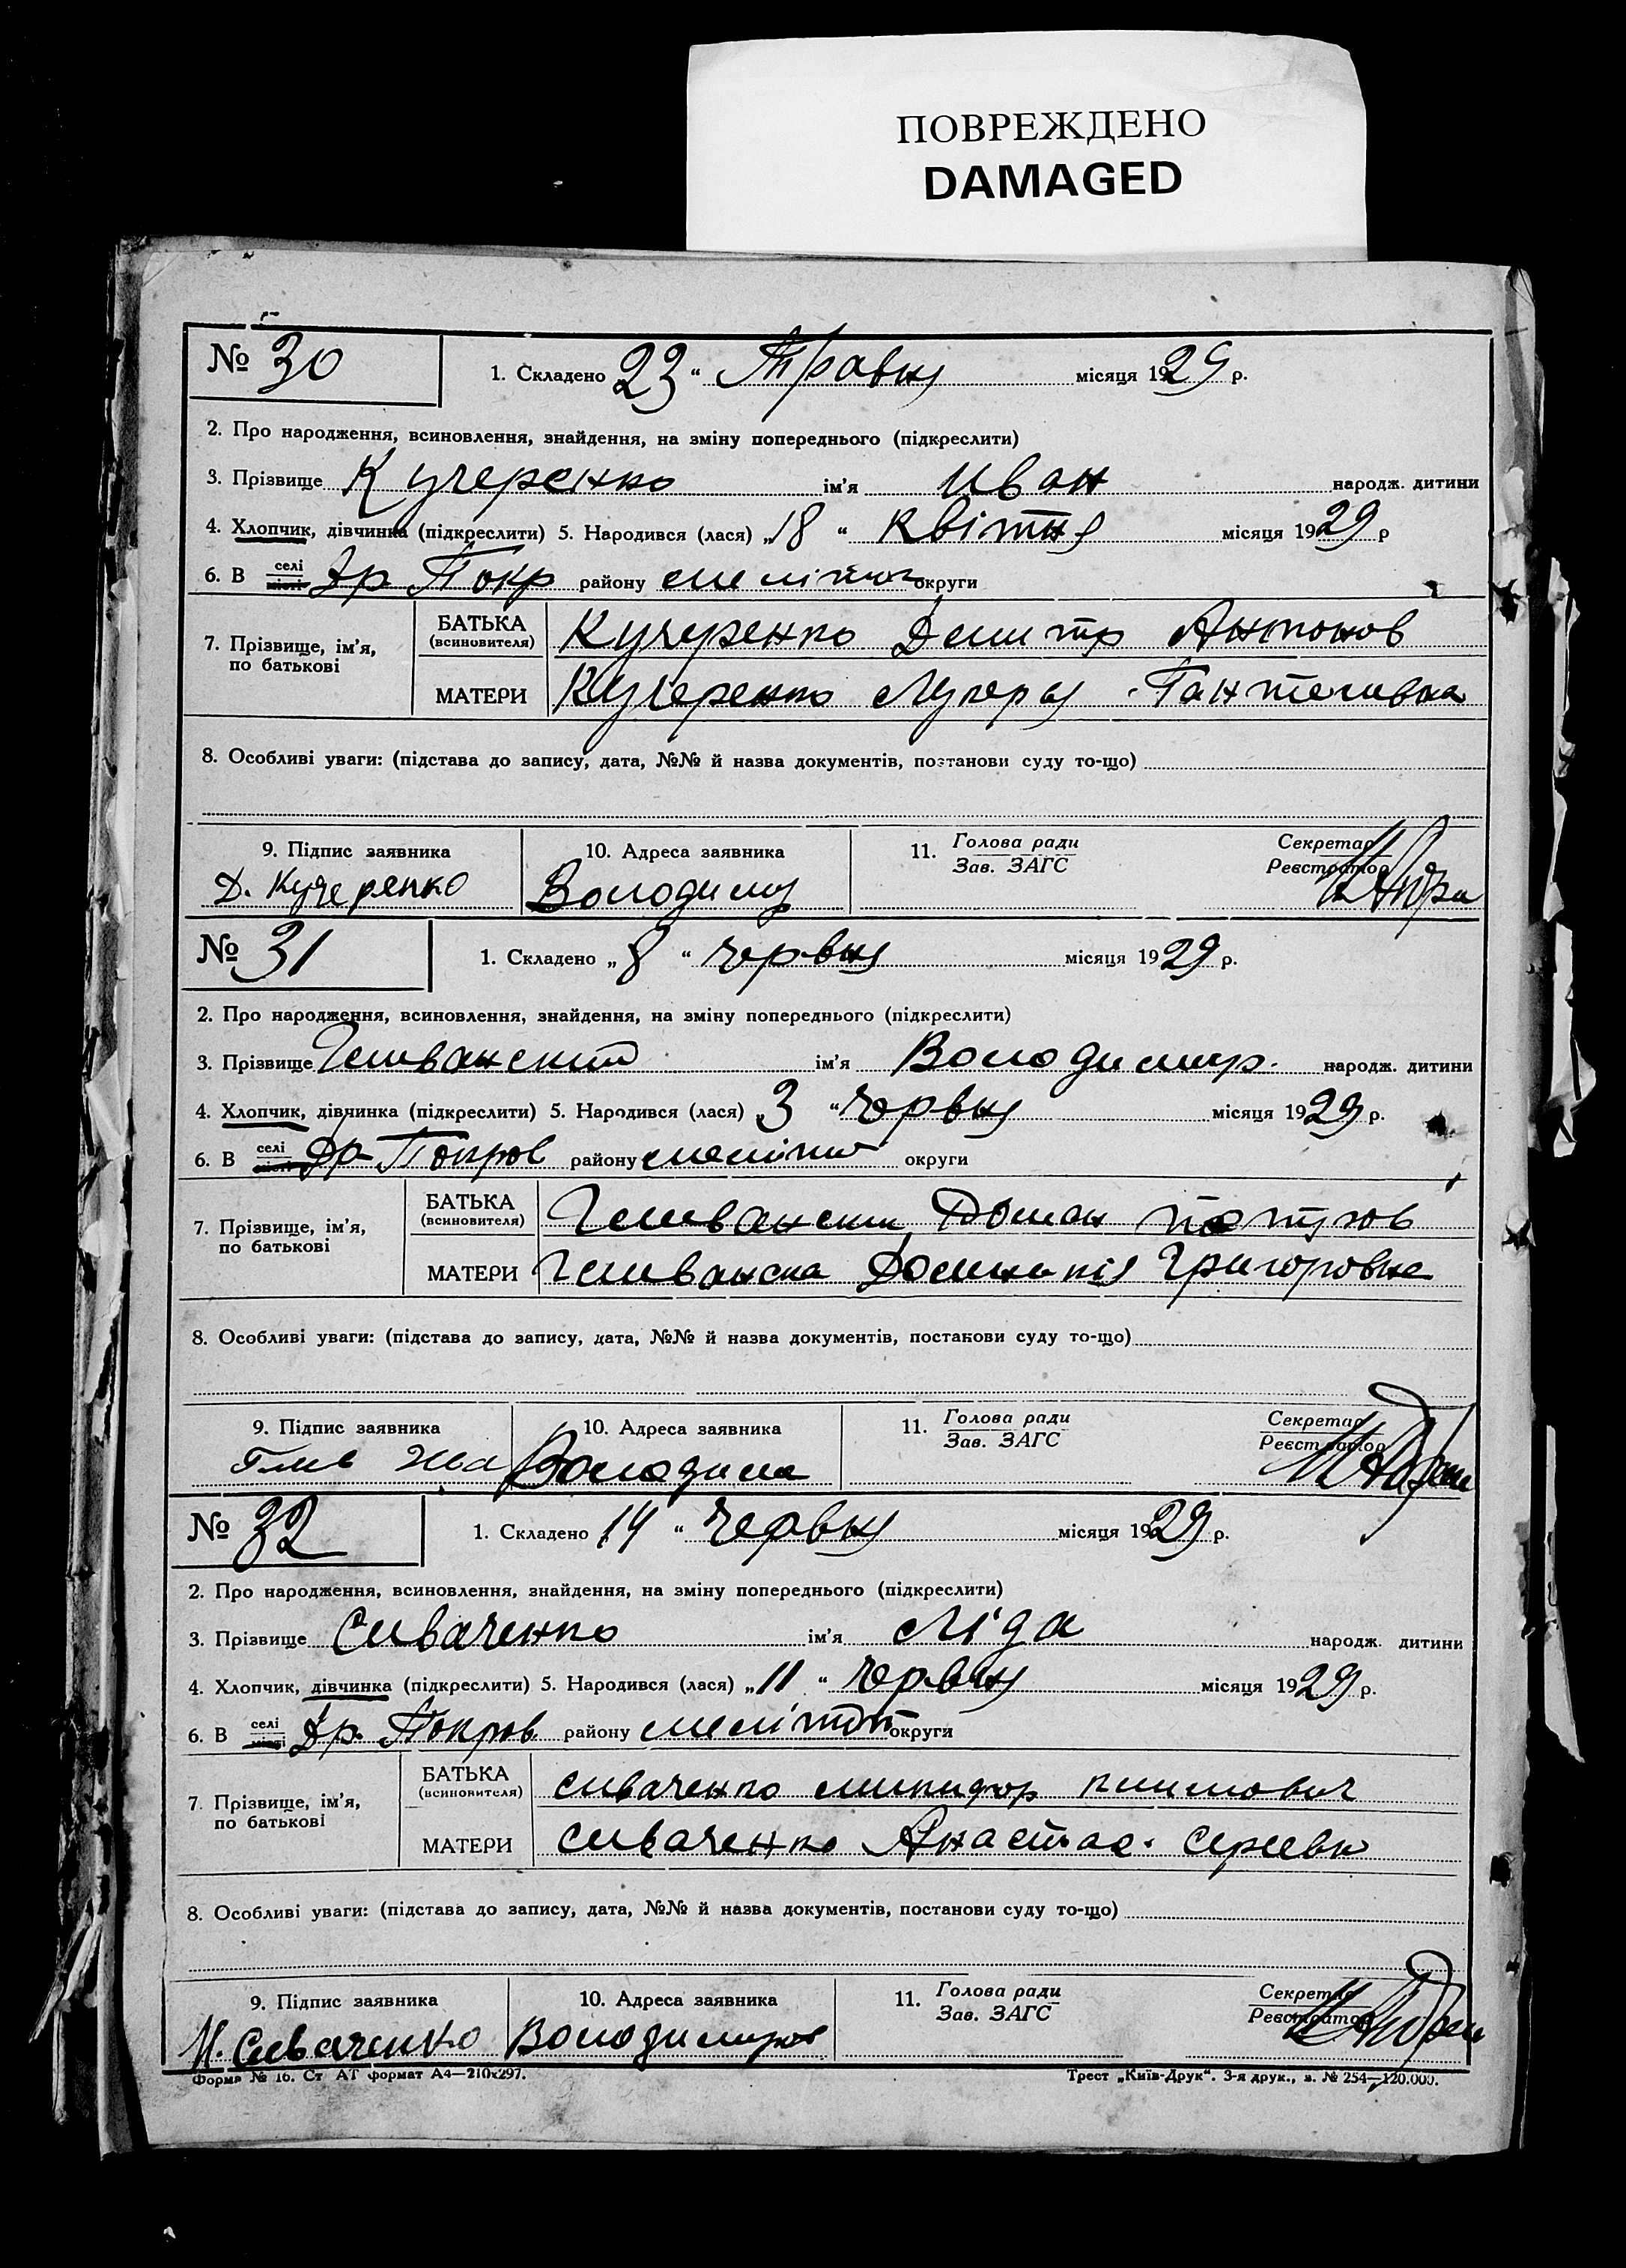 ПОВРЕЖДЕНО
DAMAGED
№ 30 1. Складено 23 " Травня місяця 1929 р.
2. Про народження, всиновлення, знайдення, на зміну попереднього (підкреслити)
3. Прізвище Кучеренко ім'я Иван народж. дитини
4. Хлопчик, дівчинка (підкреслити) 5. Народився (лася) „18 " квітня місяця 1929 р
6. В селі місті Др Покр району меліт округи
7. Прізвище, ім'я, по батькові
БАТЬКА (всиновителя) Кучеренко Дмитр Антонов
МАТЕРИ Кучеренко Лукеря
8. Особливі уваги: (підстава до запису, дата, №№ й назва документів, постанови суду то-що)
9. Підпис заявника 10. Адреса заявника 11. Голова ради Зав. ЗАГС Секретар Реєстратор
Д. Кучеренко
№ 31 1. Складено „8 " червня місяця 1929 р.
2. Про народження, всиновлення, знайдення, на зміну попереднього (підкреслити)
3. Прізвище ім'я Володимир. народж. дитини
4. Хлопчик, дівчинка (підкреслити) 5. Народився (лася) „3 " червня місяця 1929 р.
6. В селі місті Др Покров району округи
7. Прізвище, ім'я, по батькові
БАТЬКА (всиновителя)
МАТЕРИ Григоровна
8. Особливі уваги: (підстава до запису, дата, №№ й назва документів, постанови суду то-що)
9. Підпис заявника 10. Адреса заявника 11. Голова ради Зав. ЗАГС Секретар Реєстратор
№ 32 1. Складено 14 " червня місяця 1929 р.
2. Про народження, всиновлення, знайдення, на зміну попереднього (підкреслити)
3. Прізвище Сиваченко ім'я Ліда народж. дитини
4. Хлопчик, дівчинка (підкреслити) 5. Народився (лася) „11 " червня місяця 1929 р.
6. В селі місті Др. Покров району мелітоп округи
7. Прізвище, ім'я, по батькові
БАТЬКА (всиновителя) сиваченко
МАТЕРИ сиваченко Анастас.
8. Особливі уваги: (підстава до запису, дата, №№ й назва документів, постанови суду то-що)
9. Підпис заявника 10. Адреса заявника 11. Голова ради Зав. ЗАГС Секретар Реєстратор
Н. Сиваченко
Форма № 16. Ст АТ формат А4—210х297. Трест „Київ-Друк". 3-я друк., з. № 254—120.000.